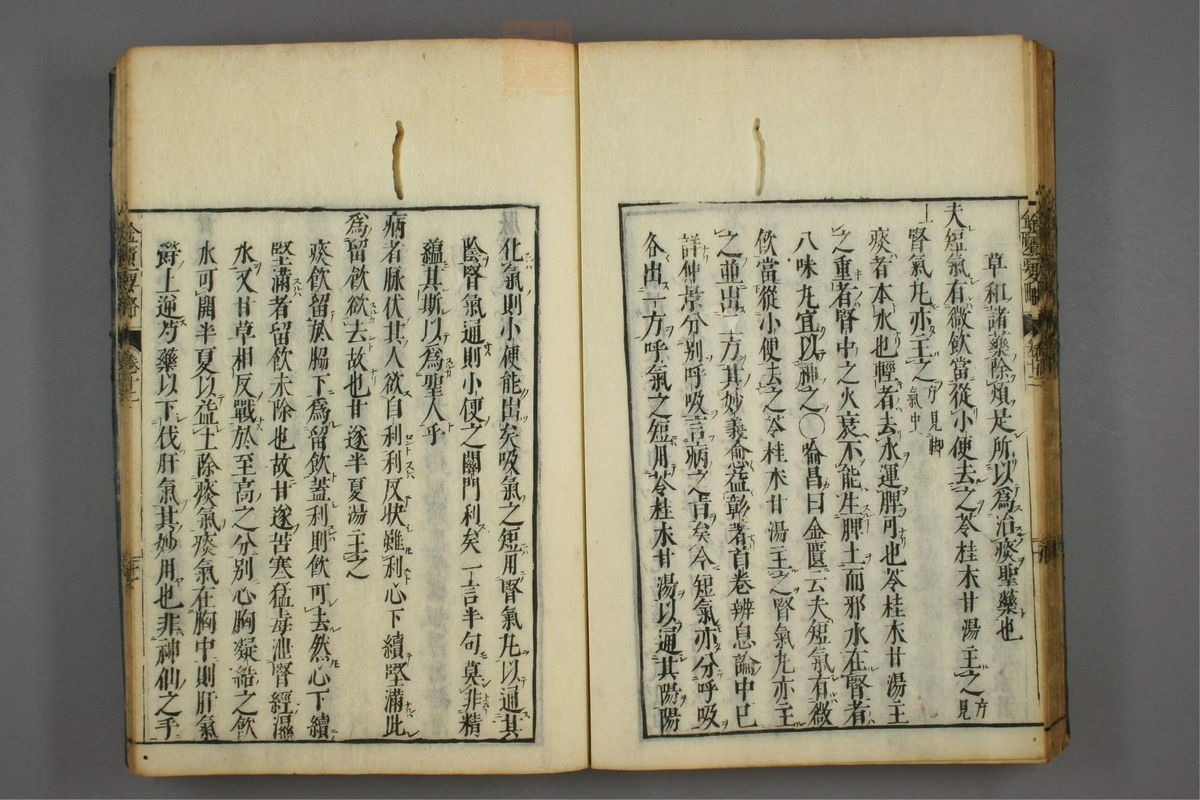 草和諸藥除煩是所以爲治痰聖藥也
夫短氣有微飲當從小便去之苓桂朮甘湯主之方見
上腎氣丸亦主之方見脚氣中
痰者本水也輕者去水運脾可也苓桂朮甘湯主
之重者腎中之火衰不能生脾土而邪水在腎者
八味丸宜以神之〇喻昌曰金匱云夫短氣有微
飲當從小便去之苓桂朮甘湯主之腎氣丸亦主
之並出二方其妙義愈益彰著首卷辨息論中已
詳仲景分別呼吸言病之旨矣今短氣亦分呼吸
各出一方呼氣之短用苓桂朮甘湯以通其陽陽
化氣則小便能出矣吸氣之短用腎氣丸以通其
陰腎氣通則小便之關門利矣一言半句莫非精
蘊其斯以爲聖人乎
病者脉伏其人欲自利利反快雖利心下續堅滿此
爲留飲欲去故也甘遂半夏湯主之
痰飲留於腸下爲留飲蓋利則飲可去然心下續
堅滿者留飲未除也故甘遂苦寒猛毒泄腎經濕
水又甘草相反戰於至高之分別心胸凝結之飲
水可開半夏以益土除痰氣痰氣在胸中則肝氣
得上逆芍藥以下伐肝氣其妙用也非神仙之手
金匱要略